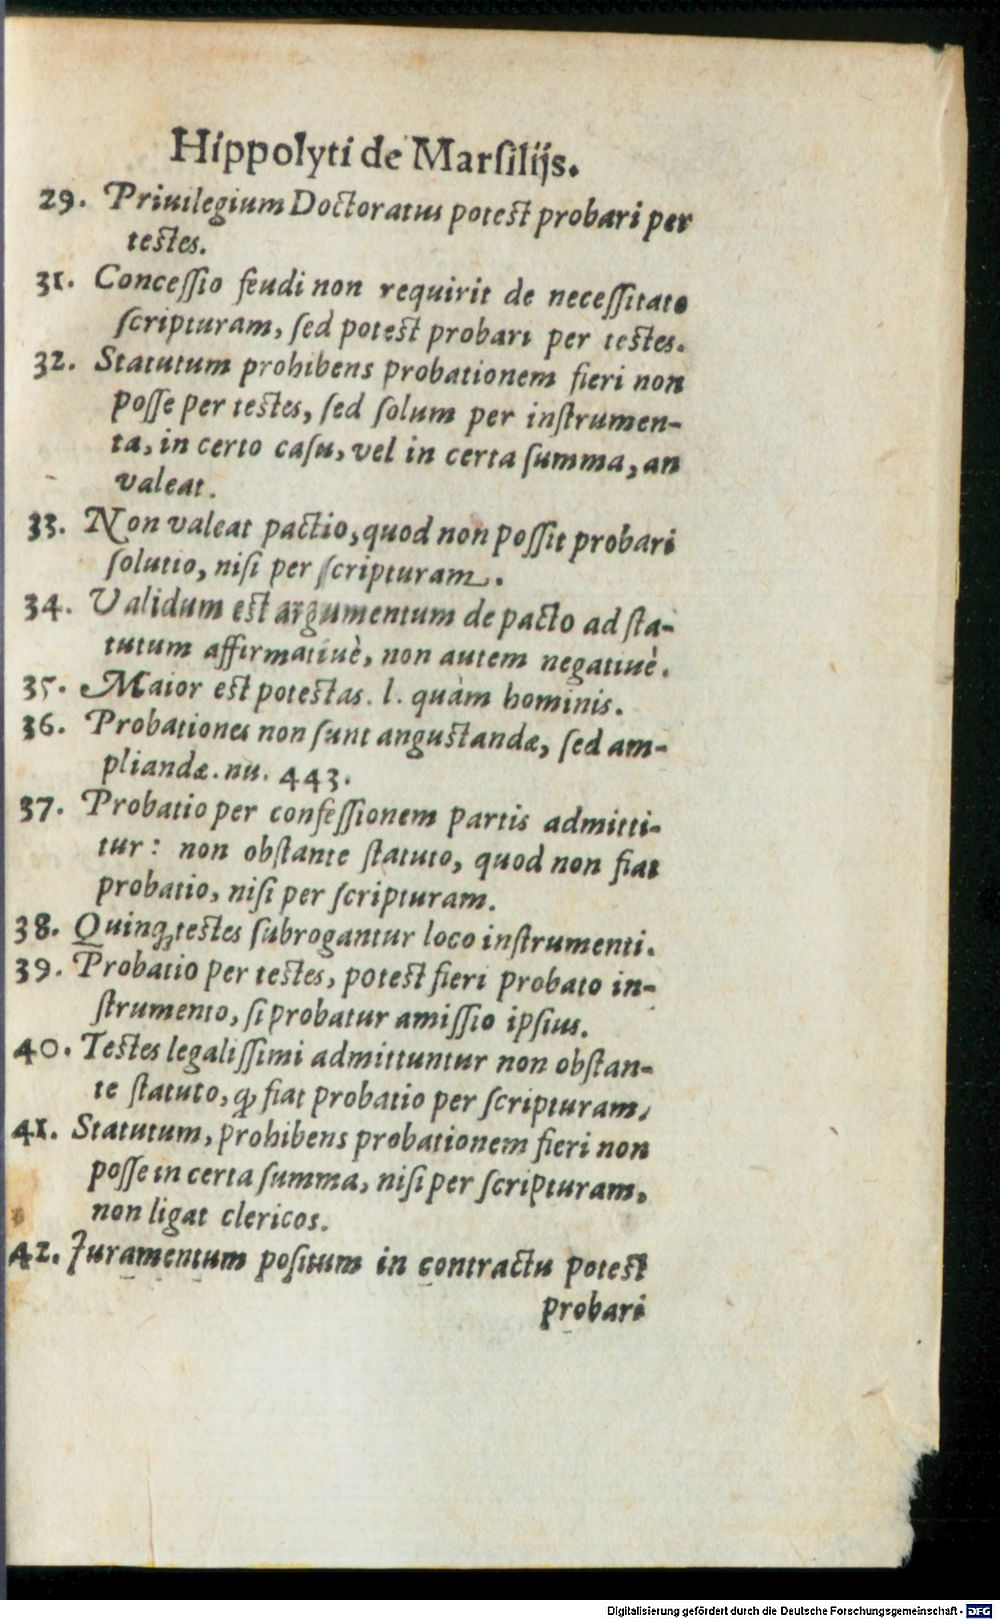 Hippolyti de Marſilijs.
29. Priuilegium Doctoratus poteſt probari per
teſtes.
31. Conceſſio feudi non requirit de neceſſitate
ſcripturam, ſed poteſt probari per teſtes.
32. Statutum prohibens probationem fieri non
poſſe per teſtes, ſed ſolum per inſtrumen-
ta, in certo caſu, vel in certa ſumma, an
valeat.
33. Non valeat pactio, quod non poſſit probari
ſolutio, niſi per ſcripturam.
34. Validum eſt argumentum de pacto ad ſta-
tutum affirmatiuè, non autem negatiuè.
35. Maior eſt poteſtas. l. quàm hominis.
36. Probationes non ſunt anguſtandæ, ſed am-
pliandæ. nu. 443.
37. Probatio per confeſſionem partis admitti-
tur: non obſtante ſtatuto, quod non fiat
probatio, niſi per ſcripturam.
38. Quinq; teſtes ſubrogantur loco inſtrumenti.
39. Probatio per teſtes, poteſt fieri probato in-
ſtrumento, ſi probatur amiſſio ipſius.
40. Teſtes legaliſſimi admittuntur non obſtan-
te ſtatuto, ꝙ fiat probatio per ſcripturam,
41. Statutum, prohibens probationem fieri non
poſſe in certa ſumma, niſi per ſcripturam,
non ligat clericos.
42. Juramentum poſitum in contractu poteſt
probari
Digitalisierung gefördert durch die Deutsche Forschungsgemeinschaft - DFG